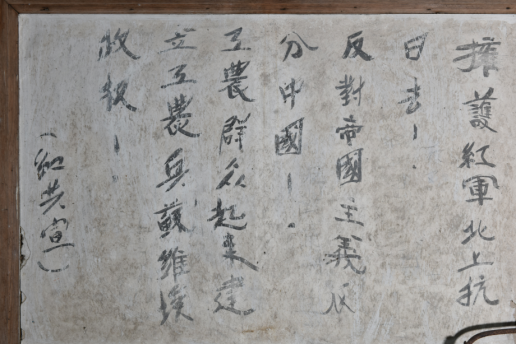 擁護紅軍北上抗
日去！
反對帝國主義瓜
分中國！
工農群众起来建
立工農兵蘇維埃
政权！
（紅共宣）